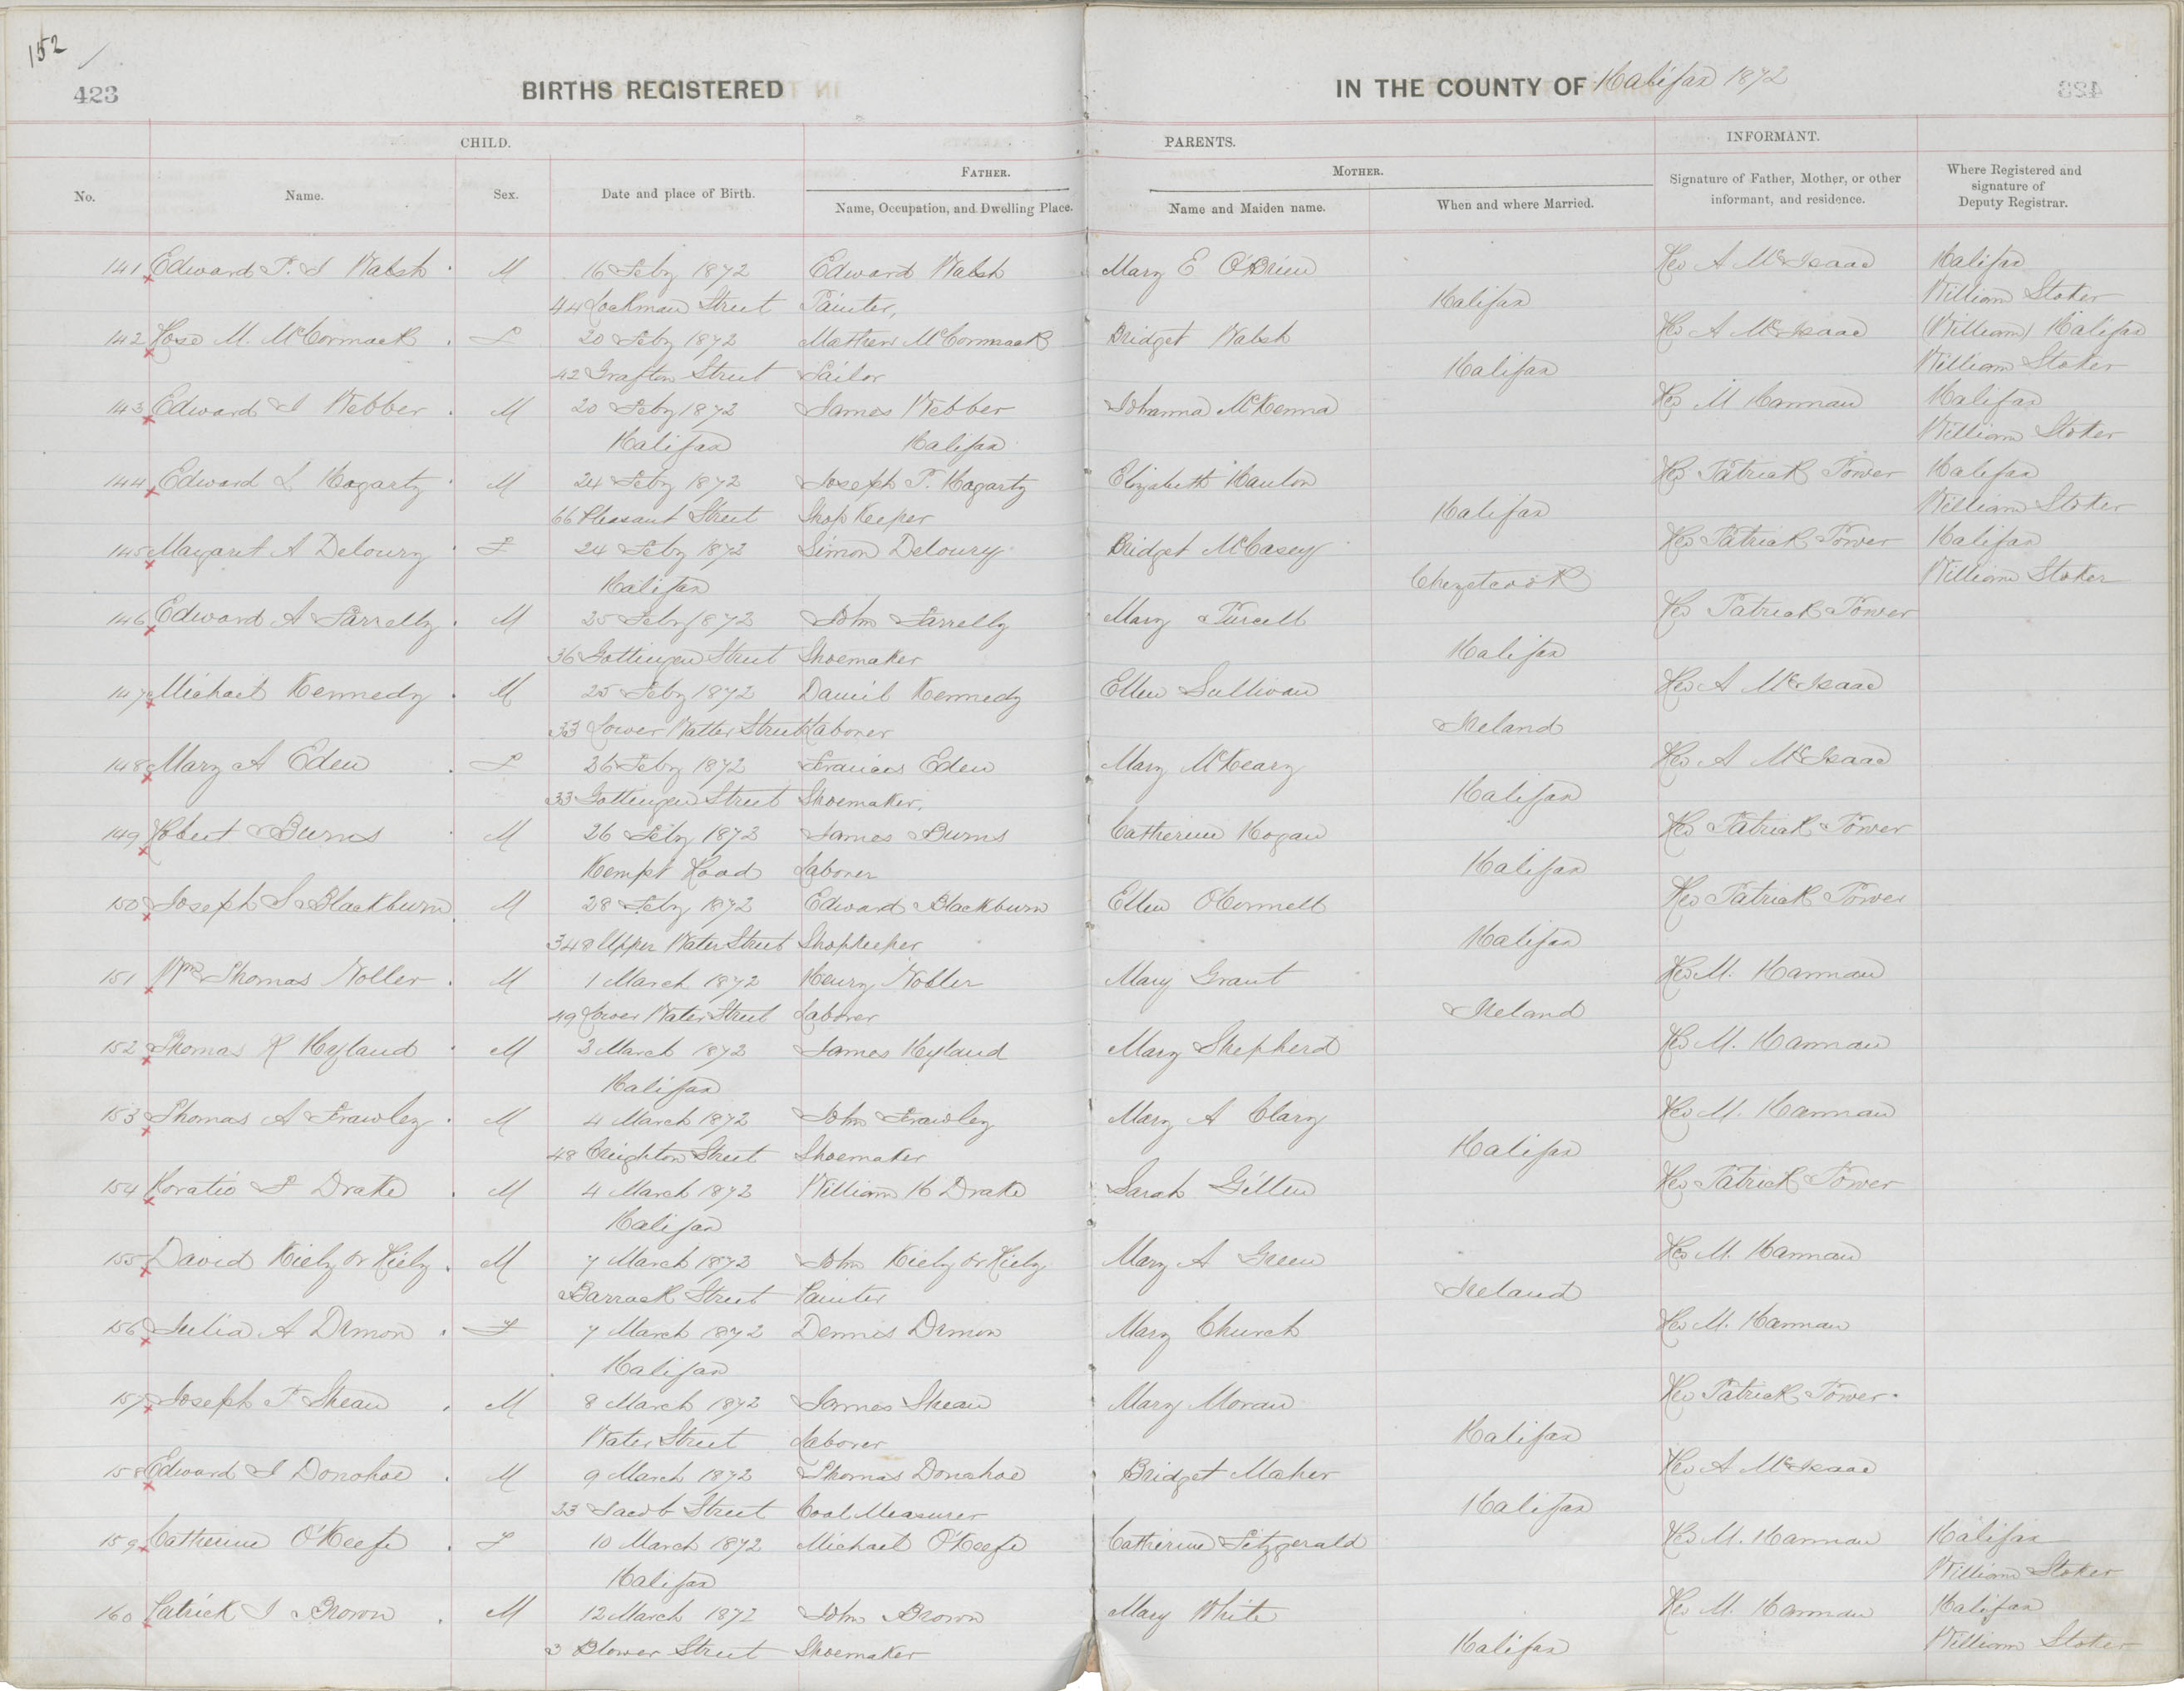 152 /
423 BIRTHS REGISTERED IN THE COUNTY OF Halifax 1872
CHILD. PARENTS. INFORMANT.
No. Name. Sex. Date and place of Birth. FATHER. Name, Occupation, and Dwelling Place. MOTHER. Name and Maiden name. When and where Married. Signature of Father, Mother, or other informant, and residence. Where Registered and signature of Deputy Registrar.
141 Edward P. J Walsh M 16 Feby 1872 Edward Walsh Mary E O'Brien Rev A McIsaac Halifax
44 Lockman Street Painter, Halifax William Stoker
142 Rose M. McCormack F 20 Feby 1872 Mathew McCormack Bridget Walsh Rev A McIsaac (William) Halifax
42 Grafton Street Sailor Halifax William Stoker
143 Edward J Webber M 20 Feby 1872 James Webber Johanna McKenna Rev M Hannan Halifax
Halifax Halifax William Stoker
144 Edward L Hogarty M 24 Feby 1872 Joseph P. Hogarty Elizabeth Hanlon Rev Patrick Power Halifax
66 Pleasant Street Shop Keeper Halifax William Stoker
145 Margaret A Deloury F 24 Feby 1872 Simon Deloury Bridget McCasey Rev Patrick Power Halifax
Halifax Chezetcook William Stoker
146 Edward A Farrelly M 25 Feby 1872 John Farrelly Mary Purcell Rev Patrick Power
36 Gottingen Street Shoemaker Halifax
147 Michael Kennedy M 25 Feby 1872 Daniel Kennedy Ellen Sullivan Rev A McIsaac
33 Lower Watter Street Laborer Ireland
148 Mary A Eden F 26 Feby 1872 Francis Eden Mary McKeary Rev A McIsaac
33 Gottingen Street Shoemaker. Halifax
149 Robert Burns M 26 Feby 1872 James Burns Catherine Hogan Rev Patrick Power
Kempt Road Laborer Halifax
150 Joseph S Blackburn M 28 Feby 1872 Edward Blackburn Ellen O'Connell Rev Patrick Power
348 Upper Water Street Shopkeeper Halifax
151 Wm Thomas Noller M 1 March 1872 Henry Nobler Mary Grant Rev M. Hannan
49 Lower Water Street Laborer Ireland
152 Thomas R Hyland M 3 March 1872 James Hyland Mary Shepherd Rev M. Hannan
Halifax
153 Thomas A Frawley M 4 March 1872 John Frawley Mary A Clary Rev M. Hannan
48 Creighton Street Shoemaker Halifax
154 Horatio F Drake M 4 March 1872 William H Drake Sarah Gillen Rev Patrick Power
Halifax
155 David Kiely or Riely M 7 March 1872 John Kiely or Riely Mary A Green Rev M. Hannan
Barrack Street Painter Ireland
156 Julia A Drmon F 7 March 1872 Dennis Drmon Mary Church Rev M. Hannan
Halifax
157 Joseph P Shean M 8 March 1872 James Shean Mary Moran Rev Patrick Power
Water Street Laborer Halifax
158 Edward J Donohoe M 9 March 1872 Thomas Donahoe Bridget Maher Rev A McIsaac
23 Jacob Street Coal Measurer Halifax
159 Catherine O'Keefe F 10 March 1872 Michael O'Keefe Catherine Fitzgerald Rev M. Hannan Halifax
Halifax William Stoker
160 Patrick J Brown M 12 March 1872 John Brown Mary White Rev M. Hannan Halifax
3 Blower Street Shoemaker Halifax William Stoker